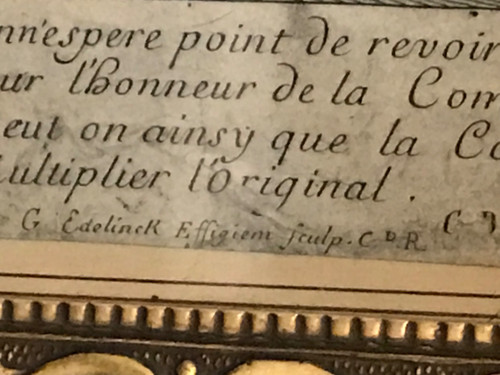 nn'espere point de revoir
ur l'honneur de la Com
eut on ainsy que la Co
ultiplier l'Original.
G Edelinck Effigiem sculp. C D R